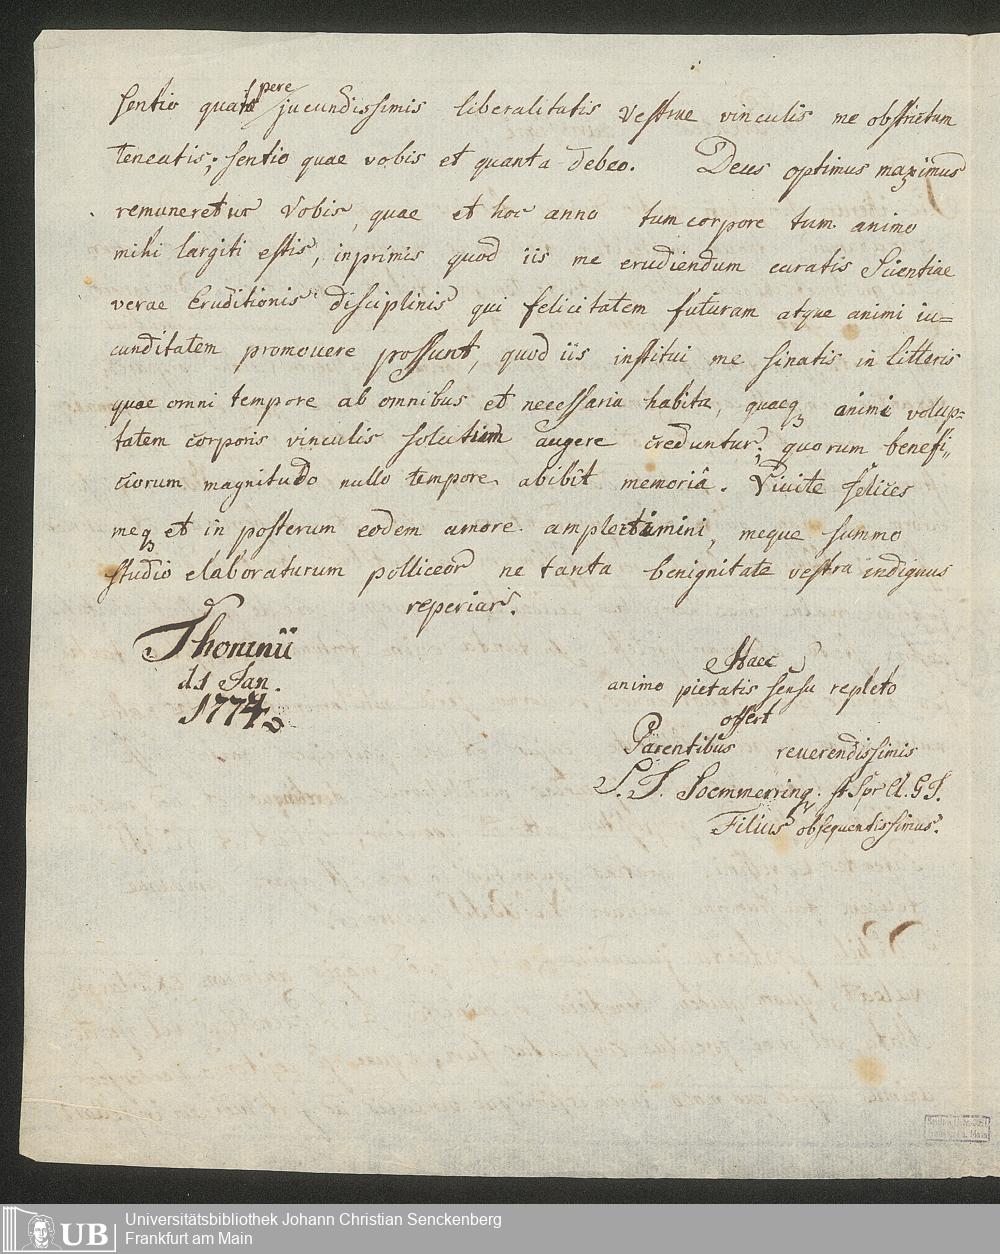 sentio quantopere jucundissimis liberalitatis Vestrae vinculis me obstrictum
Teneatis; sentio quae vobis et quanta debeo. Deus optimus maximus
remuneretur Vobis, quae et hoc anno tum corpore tum animo
mihi largiti estis, inprimis quod iis me erudiendum curatis Scientiae
verae Eruditionis disciplinis qui felicitatem futuram atque animi iu=
cunditatem promouere possunt, quod iis institui me sinatis in litteris
quae omni tempore ab omnibus et necessaria habita, quaeq animi volup=
tatem corporis vinculis solutam augere creduntur; quorum benefi„
ciorum magnitudo nullo tempore abibit memoriâ. Viuite felices
meq et in posterum eodem amore amplectimini, meque summo
studio elaboraturum polliceor ne tanta benignitate vestra indignus
reperiar.
Thorunii
d. 1 Jan.
1774
Haec
animo pietatis sensu repleto
offert
Parentibus reuerendissimis
S. T. Soemmerring.
Filius obsequentissimus.
UB
Universitätsbibliothek Johann Christian Senckenberg
Frankfurt am Main